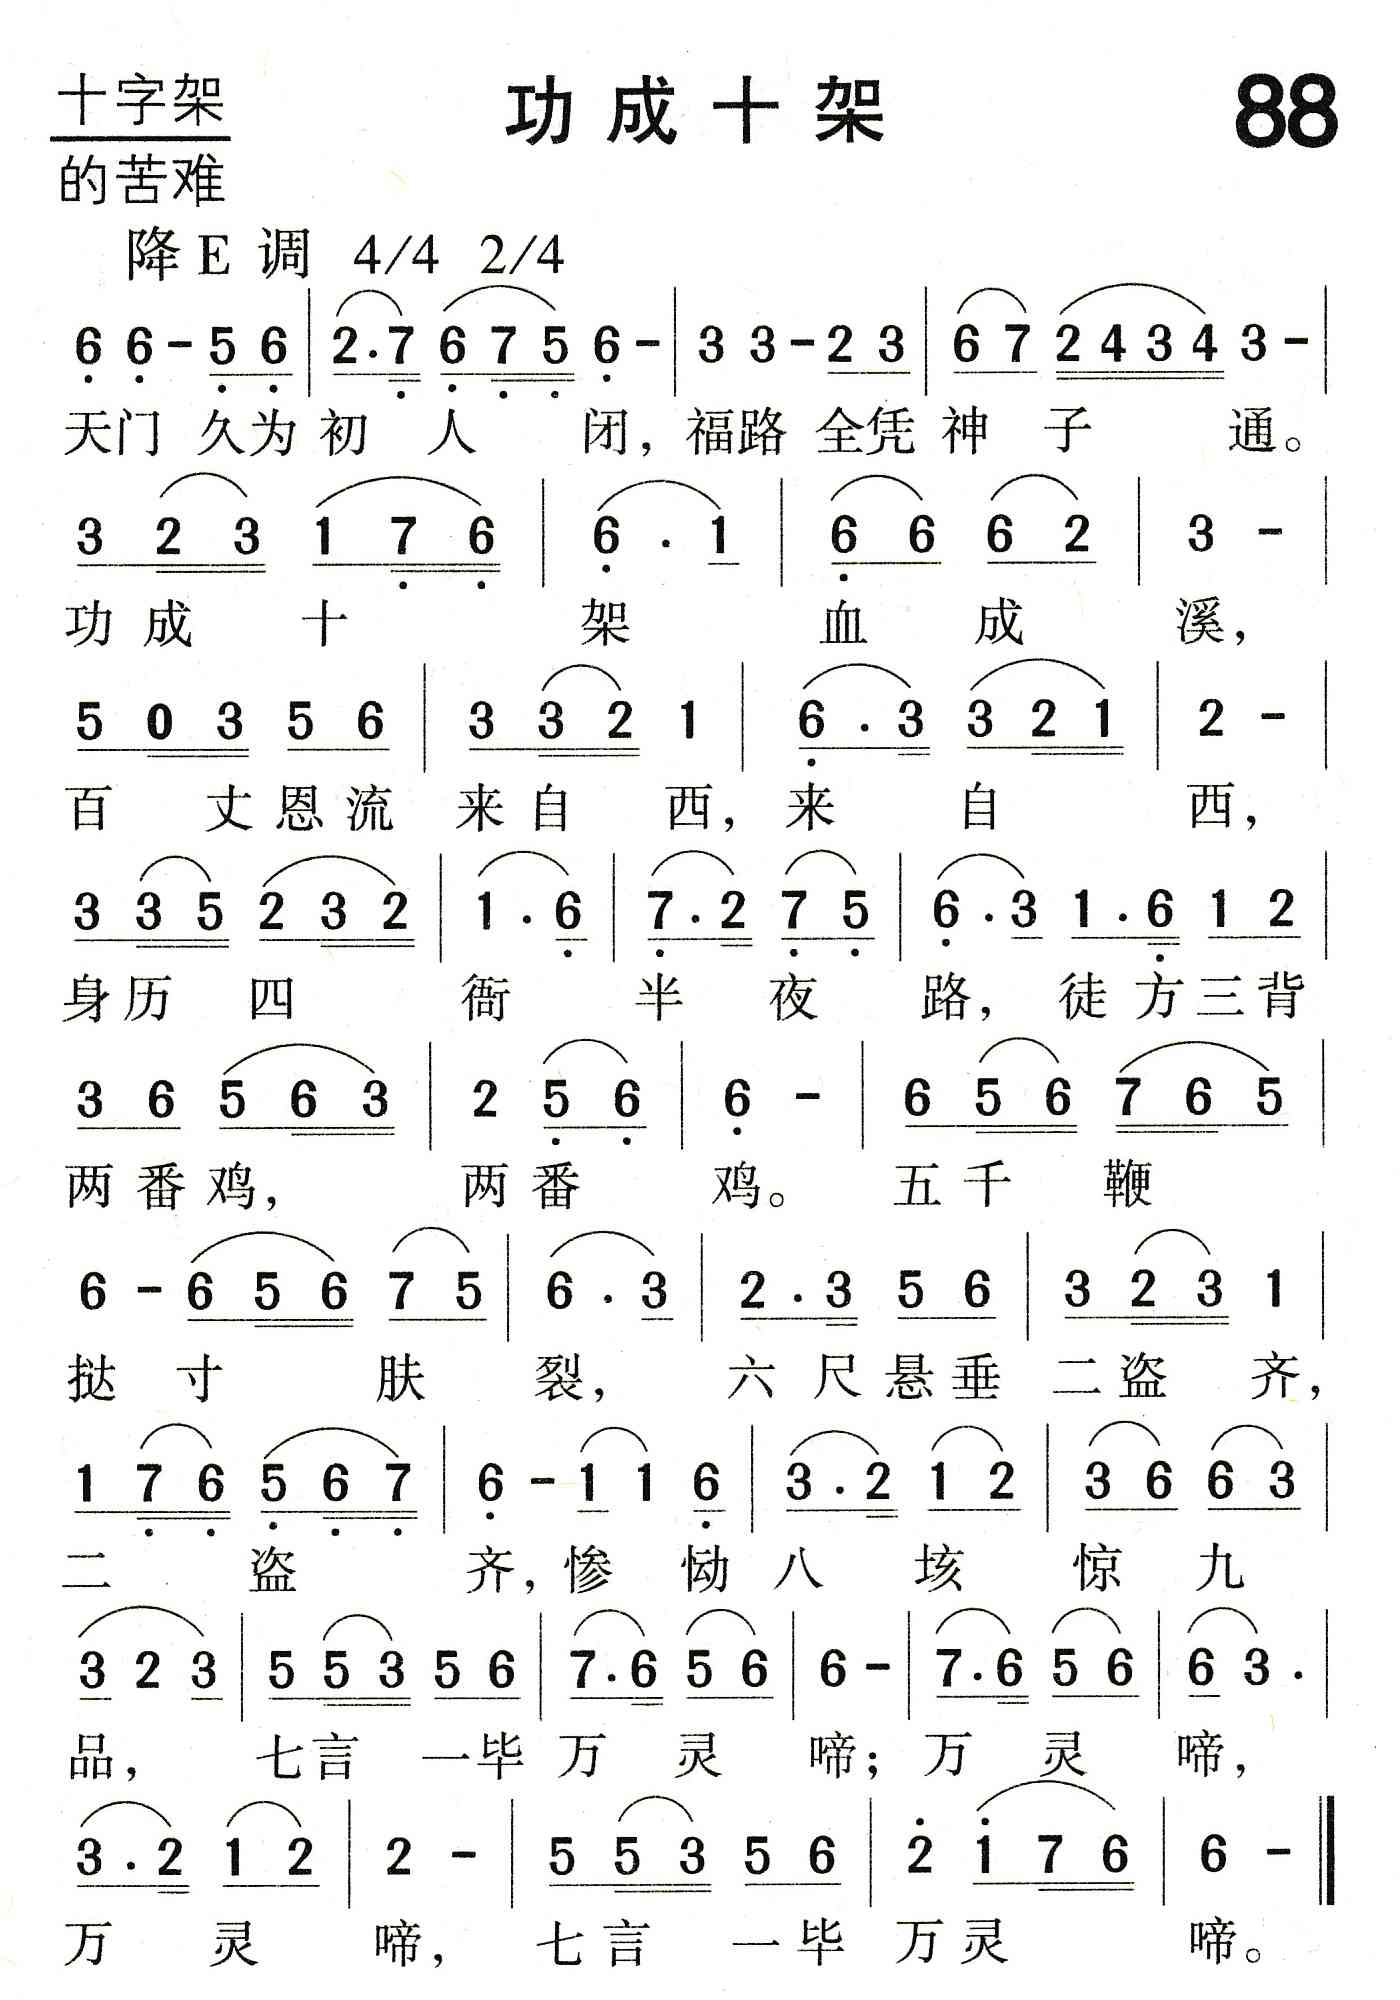 十字架 功成十架 88
的苦难
降E调 4/4 2/4
6 6 - 5 6 | 2 . 7 6 7 5 6 - | 3 3 - 2 3 | 6 7 2 4 3 4 3 - |
天门 久为初 人 闭，福路 全凭神 子 通。
3 2 3 1 7 6 | 6 . 1 | 6 6 6 2 | 3 - |
功 成 十 架 血 成 溪，
5 0 3 5 6 | 3 3 2 1 | 6 . 3 3 2 1 | 2 - |
百 丈恩流 来自 西，来 自 西，
3 3 5 2 3 2 | 1 . 6 | 7 . 2 7 5 | 6 . 3 1 . 6 1 2 |
身历 四 衙 半 夜 路，徒 方三背
3 6 5 6 3 | 2 5 6 | 6 - | 6 5 6 7 6 5 |
两番鸡， 两番 鸡。 五千 鞭
6 - 6 5 6 7 5 | 6 . 3 | 2 . 3 5 6 | 3 2 3 1 |
挞 寸 肤 裂， 六 尺悬垂 二盗 齐，
1 7 6 5 6 7 | 6 - 1 1 6 | 3 . 2 1 2 | 3 6 6 3 |
二 盗 齐，惨 恸 八 垓 惊 九
3 2 3 | 5 5 3 5 6 | 7 . 6 5 6 | 6 - | 7 . 6 5 6 | 6 3 . |
品， 七言 一毕 万 灵 啼；万 灵 啼，
3 . 2 1 2 | 2 - | 5 5 3 5 6 | 2 1 7 6 | 6 - ||
万 灵 啼， 七言 一毕 万灵 啼。